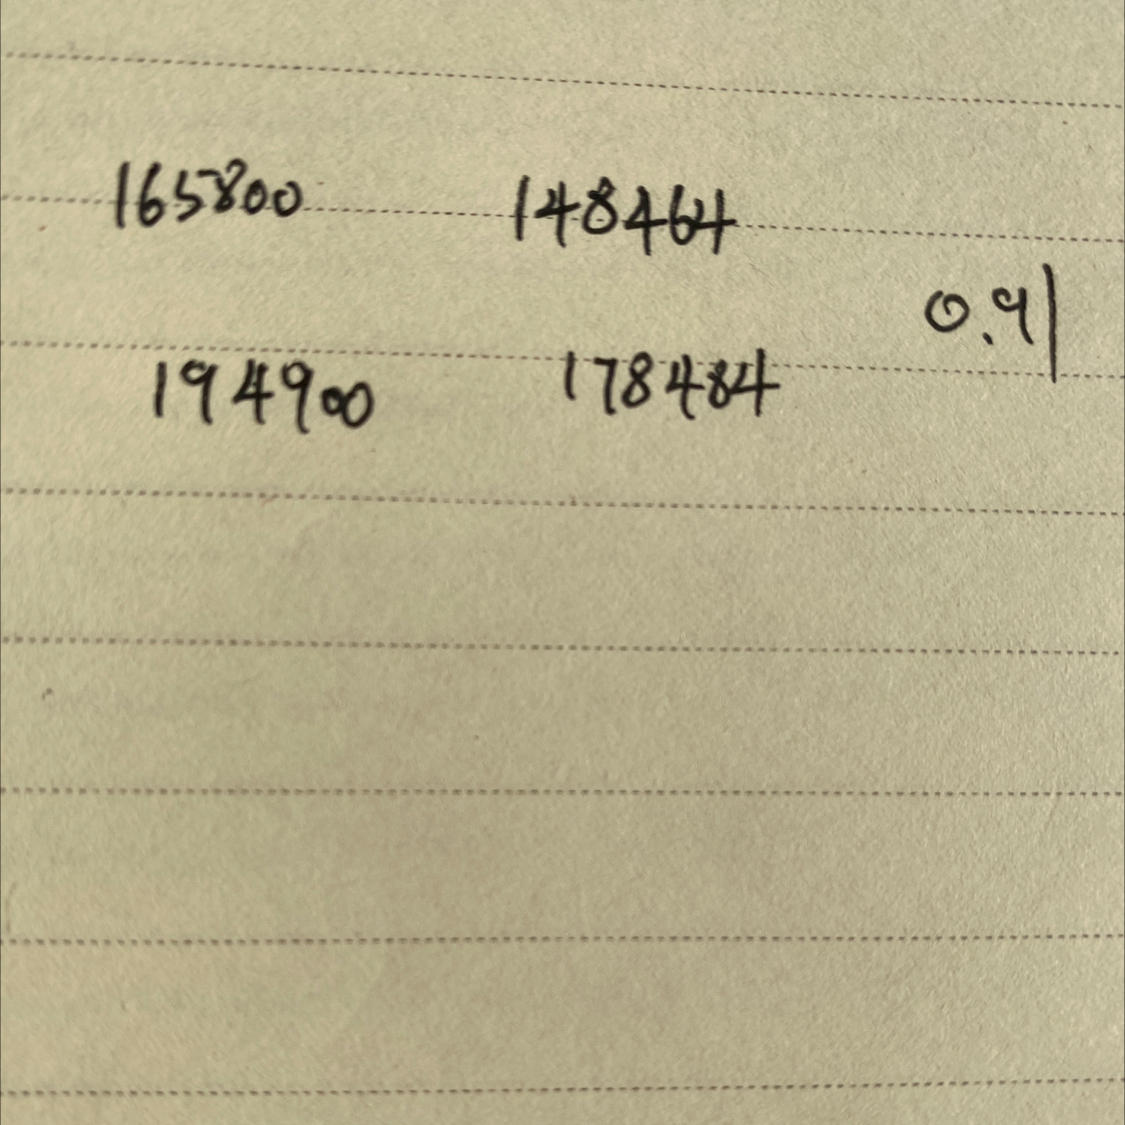 165800 148464
0.91
194900 178484